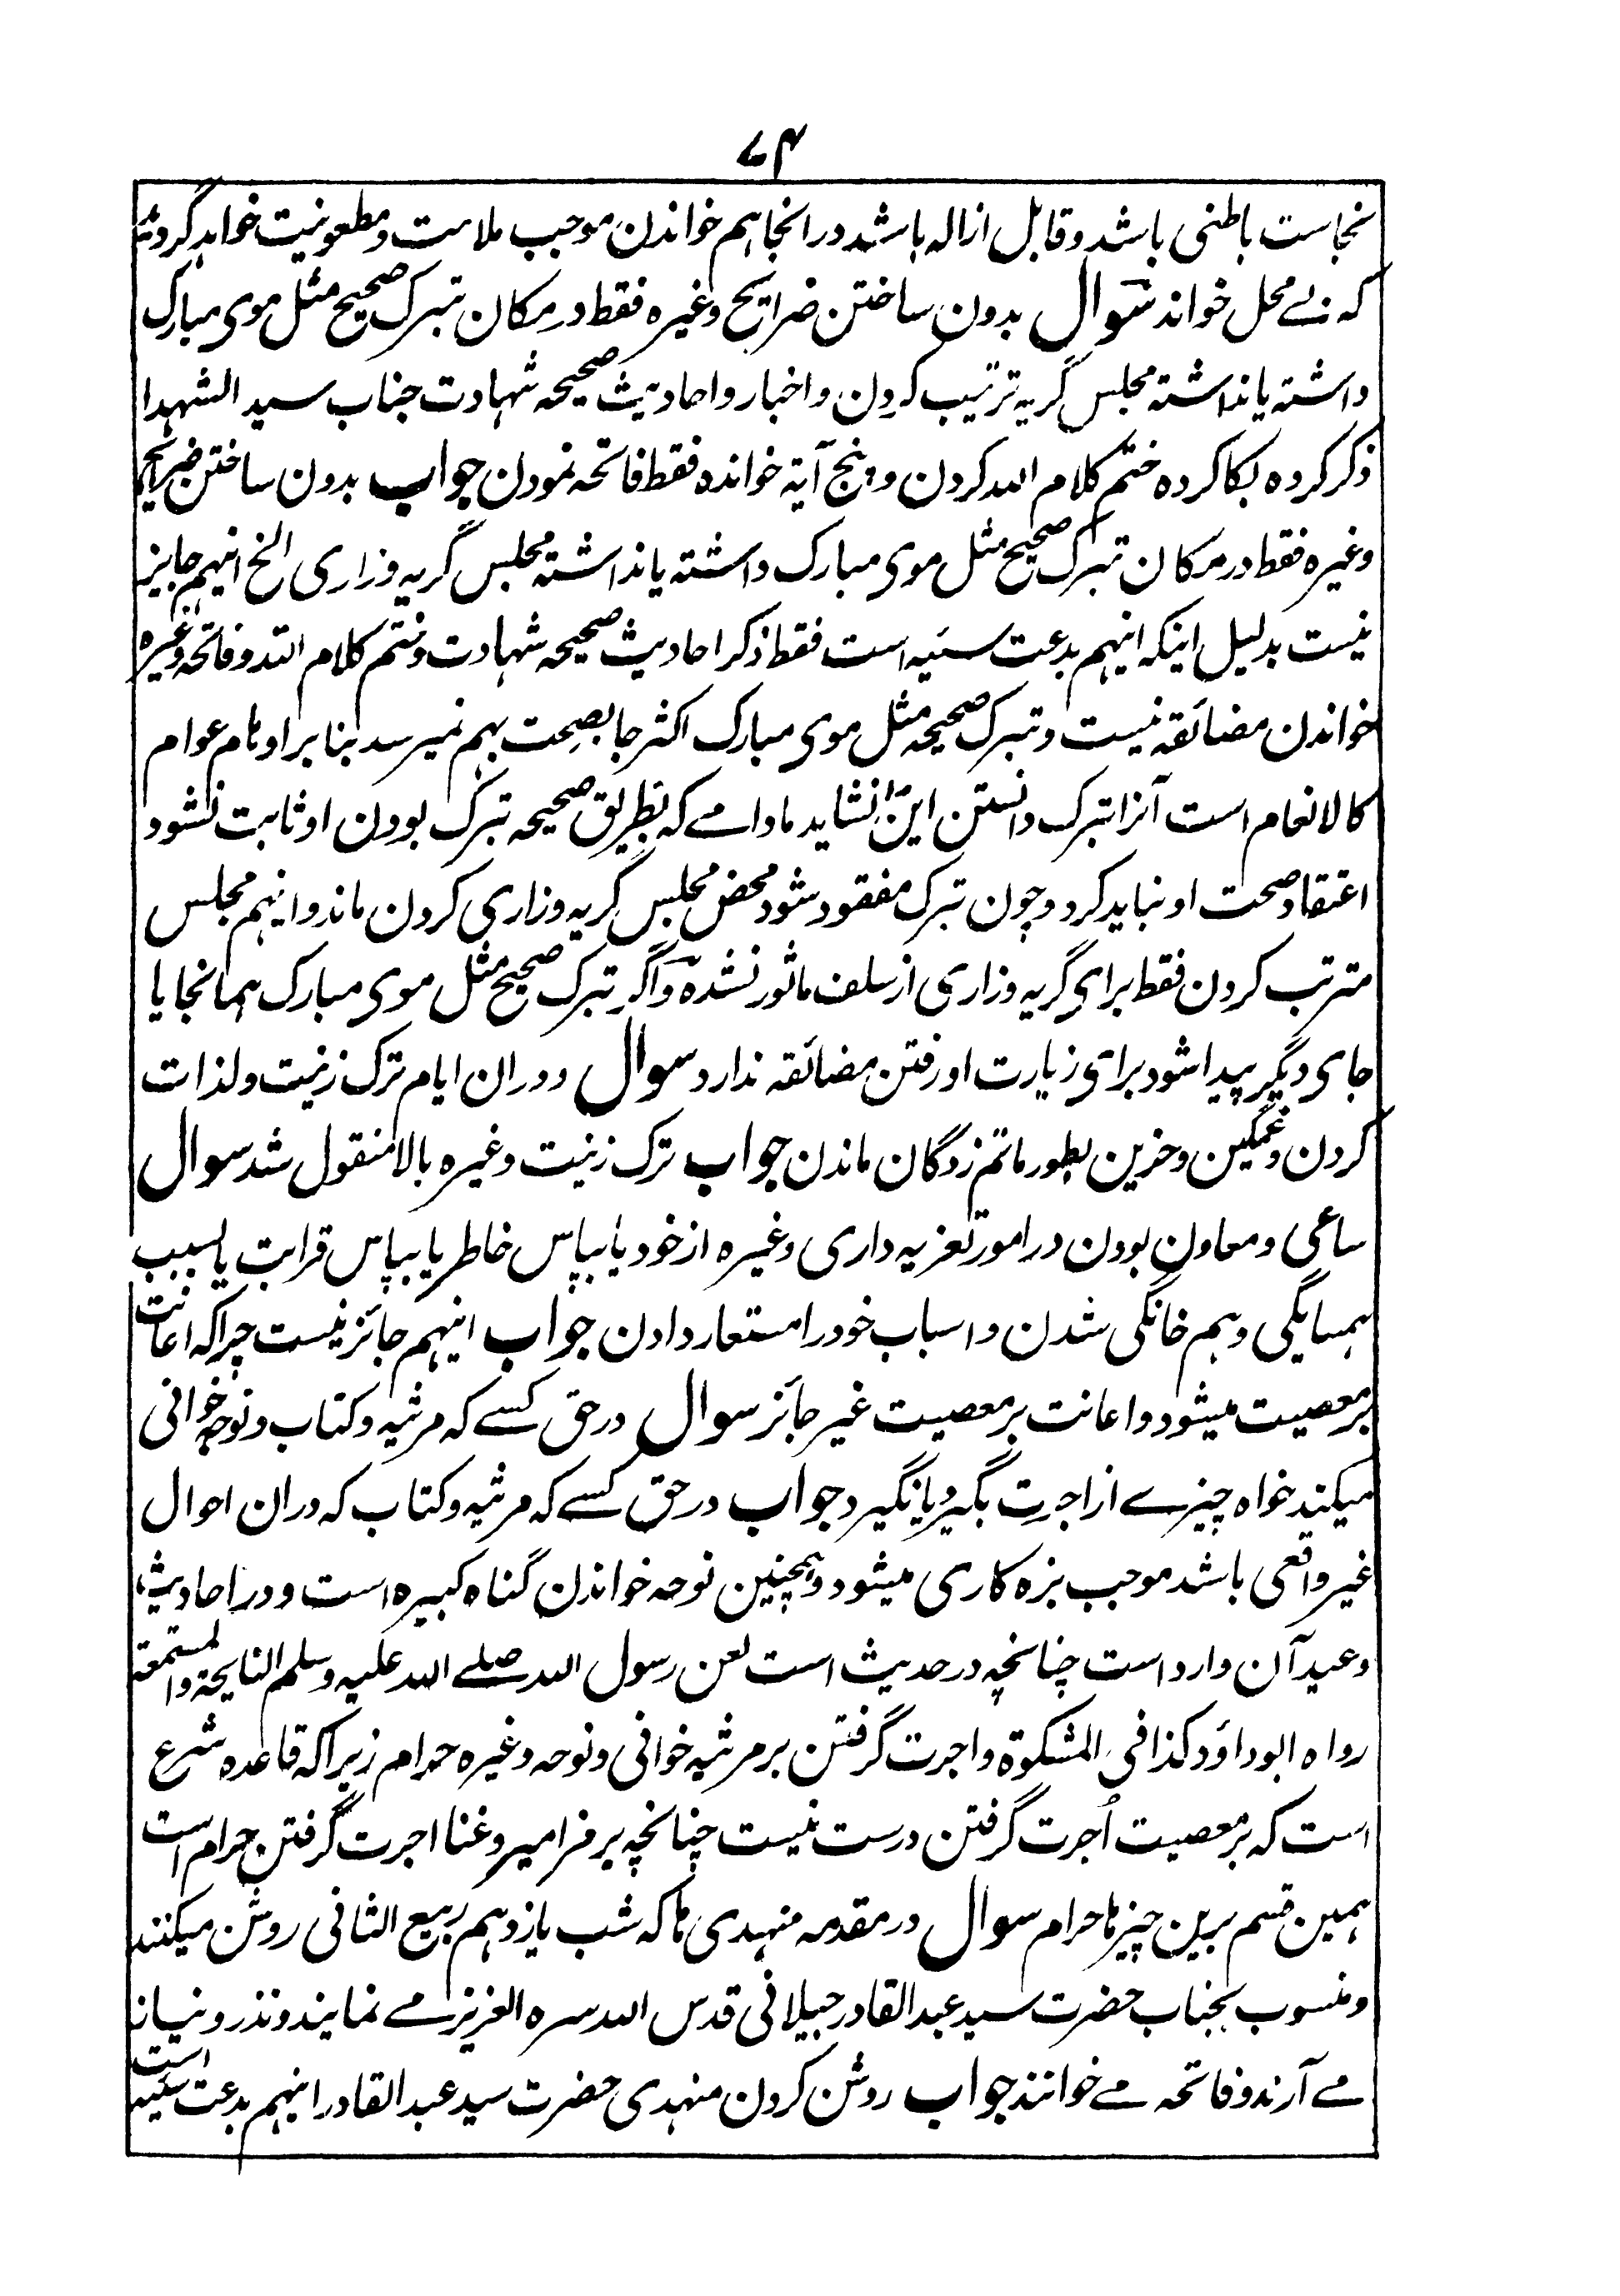 ۷۴
نجاست باطنی باشد و قابل ازاله باشد در انجا هم خواندن موجب ملامت و مطعونیت خواهد گردید
که بے محل خواند سوال بدون ساختن ضرایح وغیره فقط در مکان تبرک صحیح مثل موی مبارک
داشته یا نداشته مجلس گریه ترتیب کردن و اخبار و احادیث صحیحه شهادت جناب سید الشهدا
ذکر کرده بکا کرده ختم کلام الله کردن و پنج آیة خوانده فقط فاتحه نمودن جواب بدون ساختن ضرایح
وغیره فقط در مکان تبرک صحیح مثل موی مبارک داشته یا نداشته مجلس گریه و زاری الخ اینهم جایز
نیست بدلیل اینکه اینهم بدعت سئیه است فقط ذکر احادیث صحیحه شهادت و ختم کلام الله و فاتحه وغیره
خواندن مضائقه نیست و تبرک صحیحه مثل موی مبارک اکثر جا بصحت بهم نمیرسد بنا بر اوهام عوام
کالانعام است آنرا تبرک دانستن این را نشاید مادامے که بطریق صحیحه تبرک بودن او ثابت نشود
اعتقاد صحت او نباید کرد و چون تبرک مفقود شود محض مجلس گریه و زاری کردن ماند و اینهم مجلس
مترتب کردن فقط برای گریه و زاری از سلف ماثور نشده و اگر تبرک صحیح مثل موی مبارک همانجا یا
جای دیگر پیدا شود برای زیارت او رفتن مضائقه ندارد سوال و دران ایام ترک زینت و لذات
کردن و غمگین و حزین بطور ماتم زدگان ماندن جواب ترک زینت وغیره بالا منقول شد سوال
ساعی و معاون بودن در امور تعزیه داری وغیره از خود یا بپاس خاطر یا بپاس قرابت یا بسبب
همسایگی و هم خانگی شدن و اسباب خود را مستعار دادن جواب اینهم جائز نیست چرا که اعانت
بر معصیت میشود و اعانت بر معصیت غیر جائز سوال در حق کسے که مرثیه و کتاب و نوحه خوانی
میکند خواه چیزے از اجرت بگیرد یا نگیرد جواب در حق کسے که مرثیه و کتاب که دران احوال
غیر واقعی باشد موجب بزه کاری میشود و همچنین نوحه خواندن گناه کبیره است و در احادیث
وعید آن وارد است چنانچه در حدیث است لعن رسول الله صلے الله علیه وسلم النایحة والمستمعة
رواه ابوداؤد کذا فی المشکوة و اجرت گرفتن بر مرثیه خوانی و نوحه وغیره حرام زیرا که قاعده شرع
است که بر معصیت اُجرت گرفتن درست نیست چنانچه بر مزامیر و غنا اجرت گرفتن حرام است
همین قسم برین چیزها حرام سوال در مقدمه منهدی ها که شب یازدهم ربیع الثانی روشن میکنند
و منسوب بجناب حضرت سید عبد القادر جیلانی قدس الله سره العزیز مے نمایند و نذر و نیاز
مے آرند و فاتحه مے خوانند جواب روشن کردن منهدی حضرت سید عبد القادر اینهم بدعت سئیه است